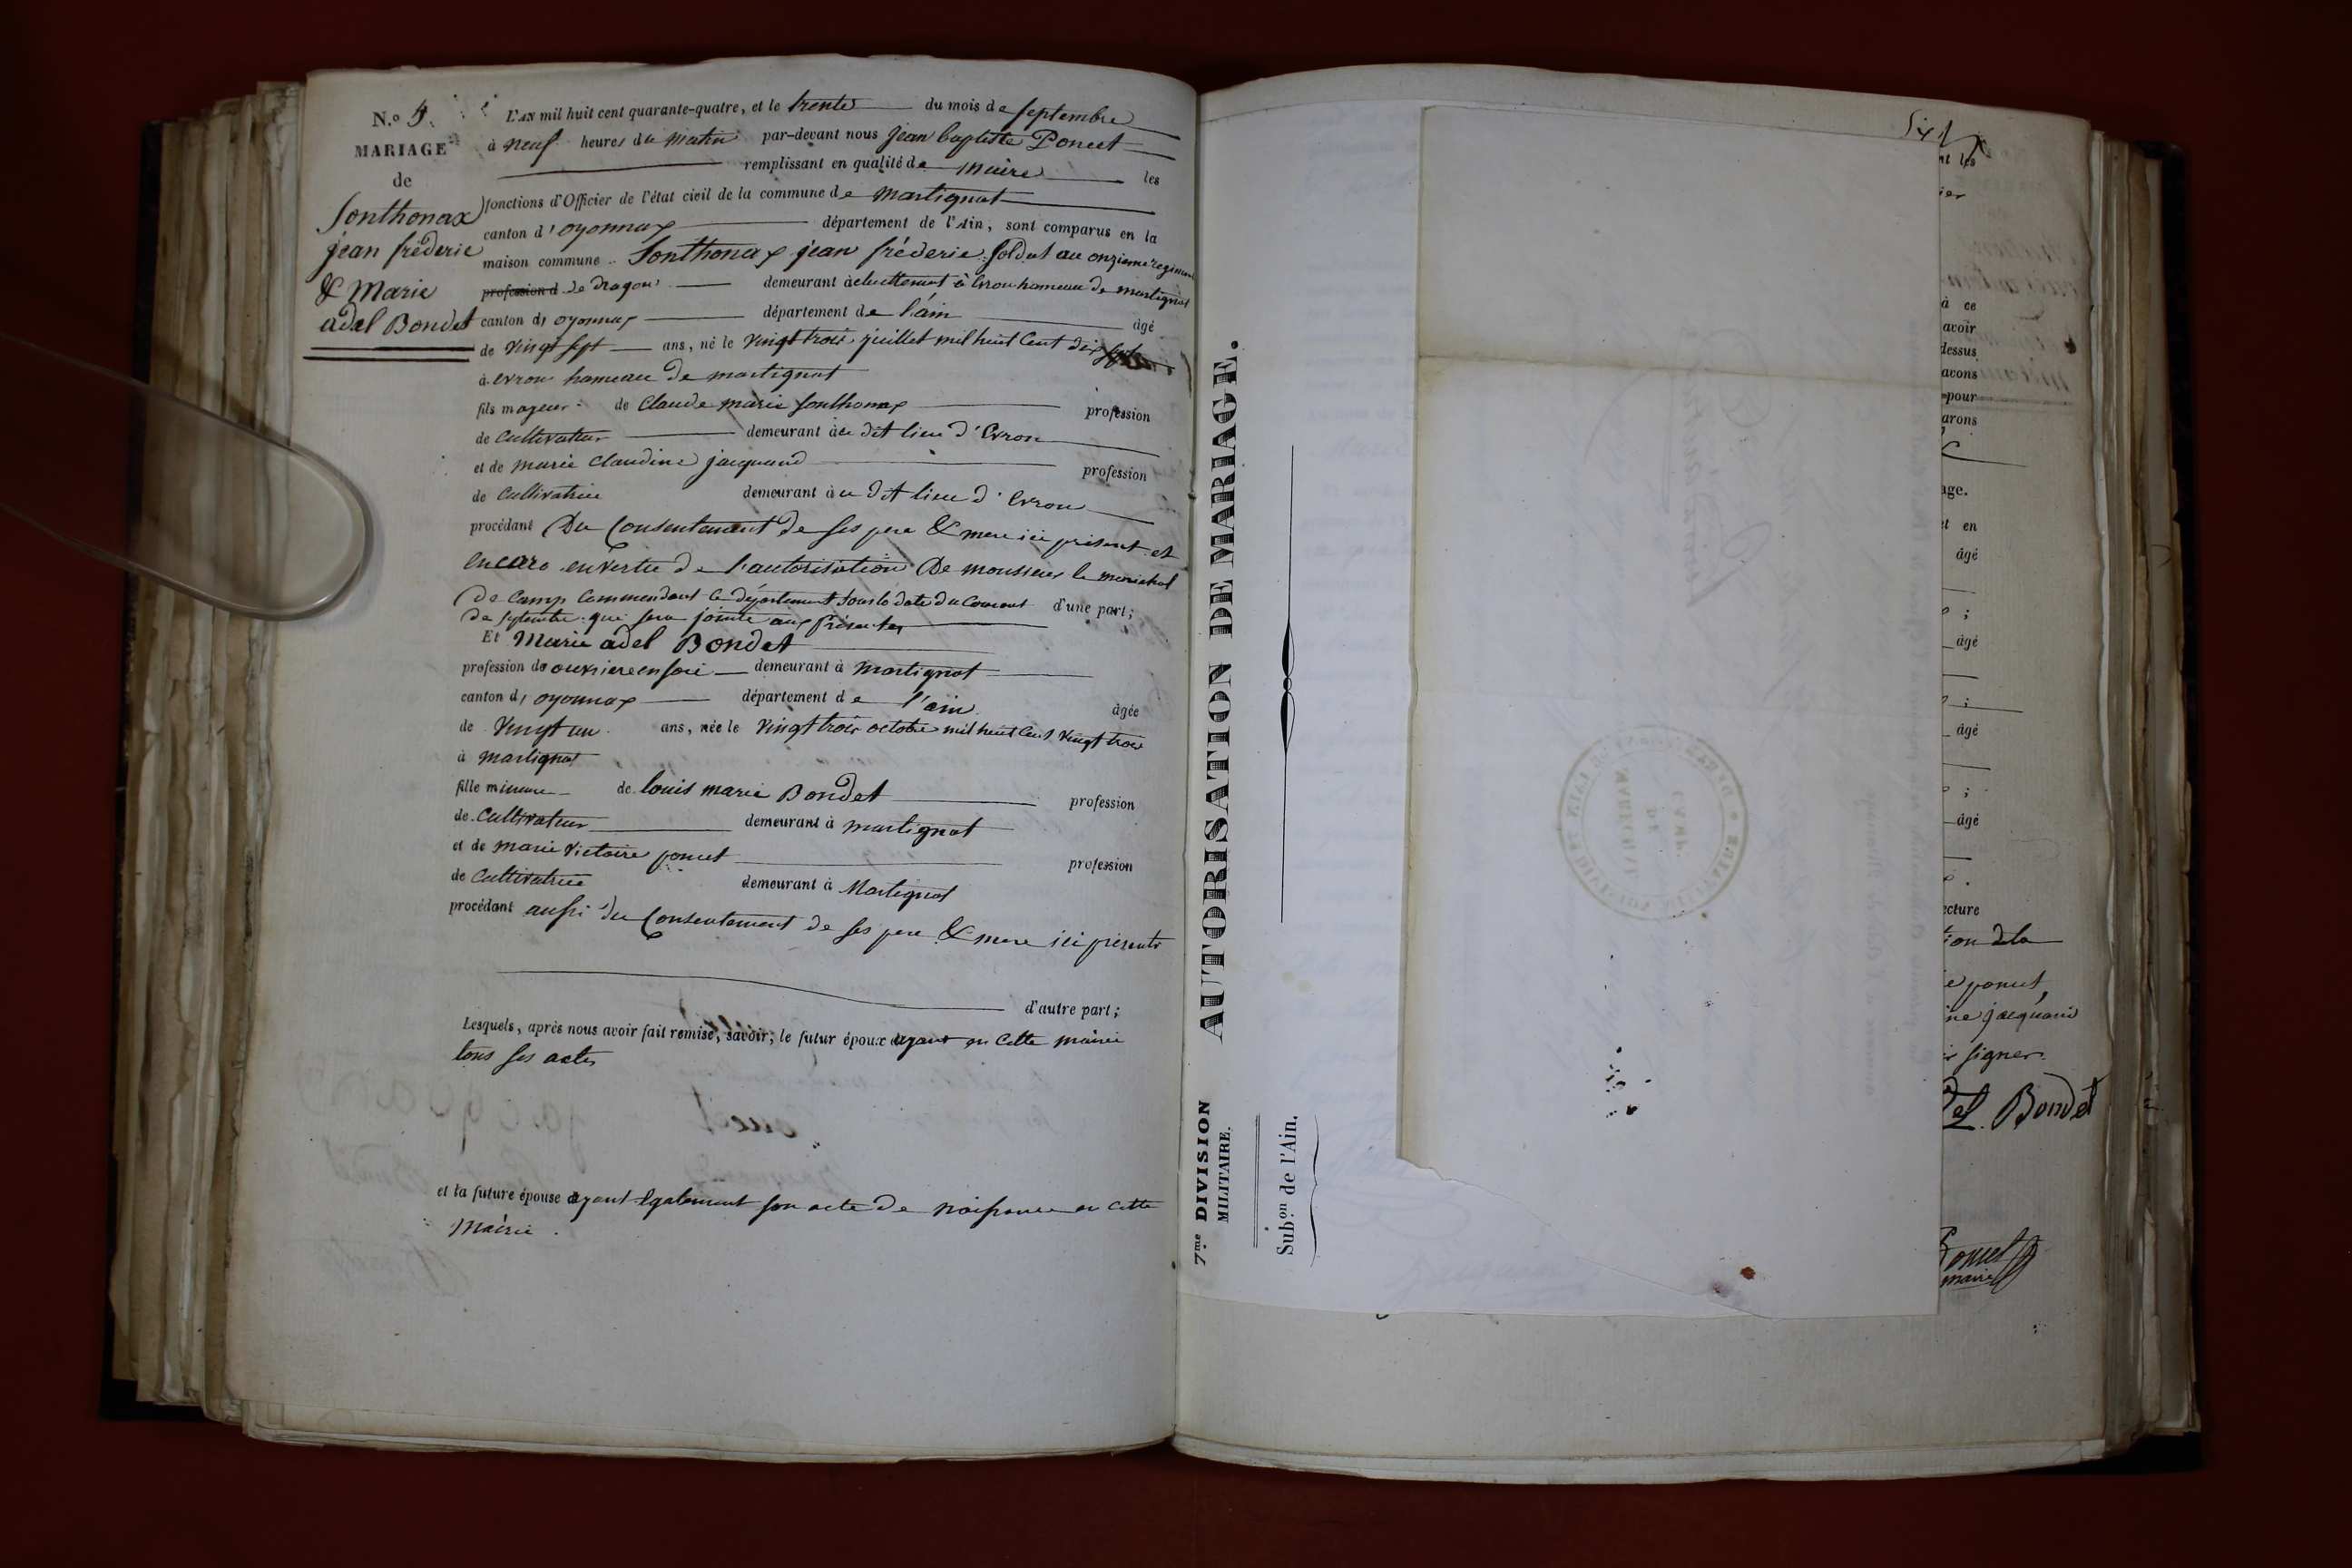 N.o 5.
MARIAGE
de
Sonthonax
jean fréderic
& Marie
adel Bondet
L'AN mil huit cent quarante-quatre, et le trente du mois de septembre
à neuf heures du matin par-devant nous jean baptiste Poncet
remplissant en qualité de maire les
fonctions d'Officier de l'état civil de la commune de martignat
canton d'oyonnax département de l'Ain, sont comparus en la
maison commune Sonthonax jean fréderic soldat au onzieme regiment
profession d de dragons demeurant actuellement à Evron hameau de martignat
canton d, oyonnax département de l'ain âgé
de vingt sept ans, né le vingt trois juillet mil huit cent dix sept
à evron hameau de martignat
fils majeur de Claude marie sonthonax profession
de cultivateur demeurant à ce dit lieu d'Evron
et de marie Claudine jacquand profession
de cultivatrice demeurant à ce dit lieu d'Evron
procédant Du Consentement de ses pere & mere ici présent et
encare en vertu de l'autorisation De monsieur le marechal
De Camp Commendant le département sous la date du Courant d'une part;
De septembre qui sera jointe aux présentes
Et Marie adel Bondet
profession de ouvriere en soie demeurant à Martignat
canton d, oyonnax département de l'ain âgée
de vingt un ans, née le vingt trois octobre mil huit cent vingt trois
à martignat
fille mineure de louis marie Bondet profession
de cultivateur demeurant à martignat
et de marie victoire poncet profession
de cultivatrice demeurant à Martignat
procédant aussi du Consentement de ses pere & mere ici présents
d'autre part;
Lesquels, après nous avoir fait remise, savoir; le futur époux ayant en cette mairie
tous ses actes
et la future épouse ayant également son acte de naissance en cette
mairie.
AUTORISATION DE MARIAGE.
7.me DIVISION
MILITAIRE.
Sub.on de l'Ain.
Six
nt les
ier
à ce
avoir
dessus
avons
pour
arons
age.
et en
âgé
;
âgé
;
âgé
;
âgé
ecture
tion de la
e poncet
ine jacquand
ir signer.
del. Bondet
Poncet
maire